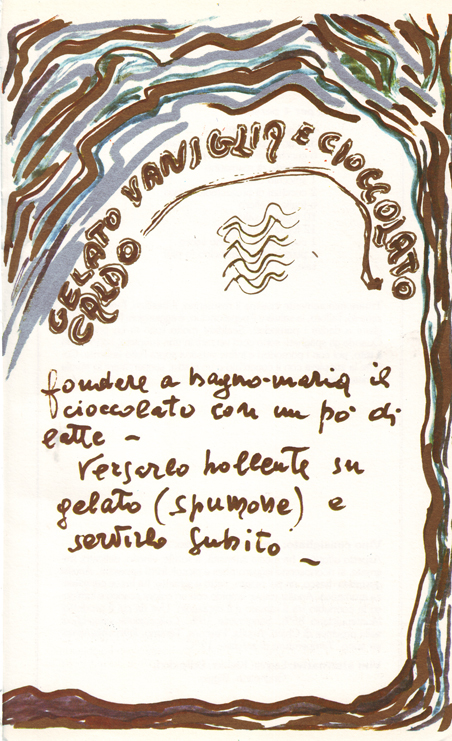 GELATO VANIGLIA E CIOCCOLATO
CALDO
fondere a bagno-maria il
cioccolato con un pó di
latte –
Versarlo bollente su
gelato (spumone) e
servirlo subito –